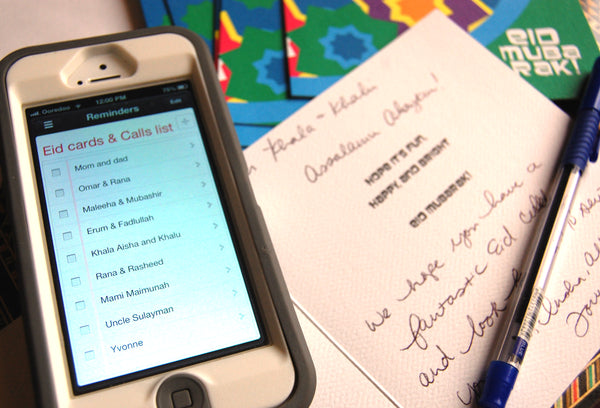 Ooredoo 12:00 PM 79%
Reminders Edit
Eid cards & Calls list
Mom and dad
Omar & Rana
Maleeha & Mubashir
Erum & Fadlullah
Khala Aisha and Khalu
Rana & Rasheed
Mami Maimunah
Uncle Sulayman
Yvonne
EID
MUBA
RAK!
Khala - Khalu
Assalamu Alaykum!
HOPE IT'S FUN,
HAPPY, AND BRIGHT
EID MUBARAK!
We hope you have a
fantastic Eid
and look